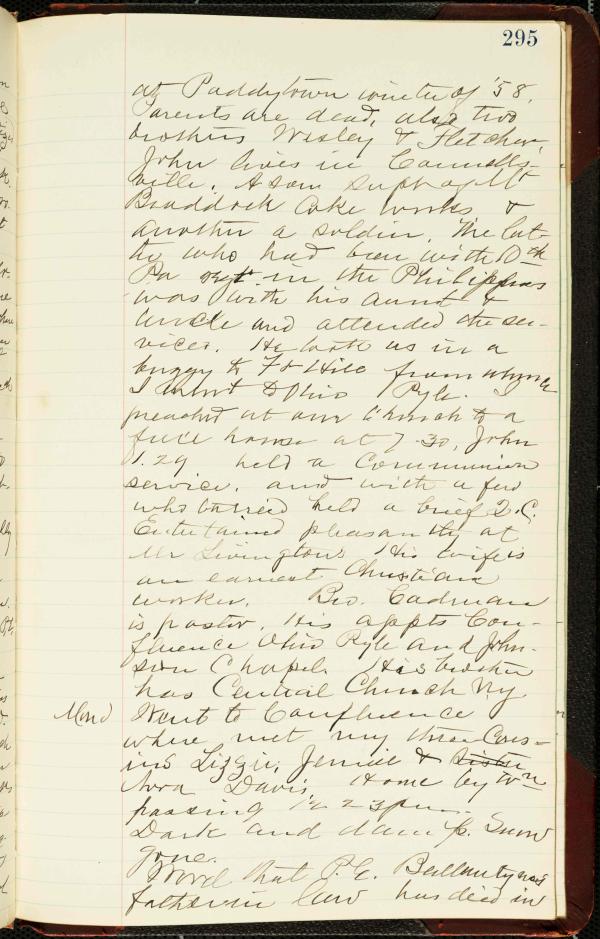 295
at Paddytown winter of '58.
Parents are dead, also two
brothers Wesley & Fletcher,
John lives in Connells-
ville. A son Supt of Mt
Braddock Coke works &
another a soldier. The lat-
ter who had been with 10th
Pa regt. in the Philippines
was with his aunt &
uncle and attended the ser-
vices. He took us in a
buggy to Ft Hill from whence
I went to Ohio Pyle.
preached at our Church to a
full house at 7-30, John
1.29 held a Communion
service. and with a few
who tarried held a brief Q.C.
Entertained pleasantly at
Mr Livingtons His wife is
an earnest Christian
worker. Bro. Cadman
is pastor. His appts Con-
fluence Ohio Pyle and John-
son Chapel. His brother
has Central Church N.Y.
Mond Went to Confluence
where met my three Cous-
ins Lizzie, Jennie & sister
Nora Davis. Home by tr n
passing 12 23 pm.
Dark and damp. Snow
gone.
Word that P.E. Ballantynes
father in law has died in